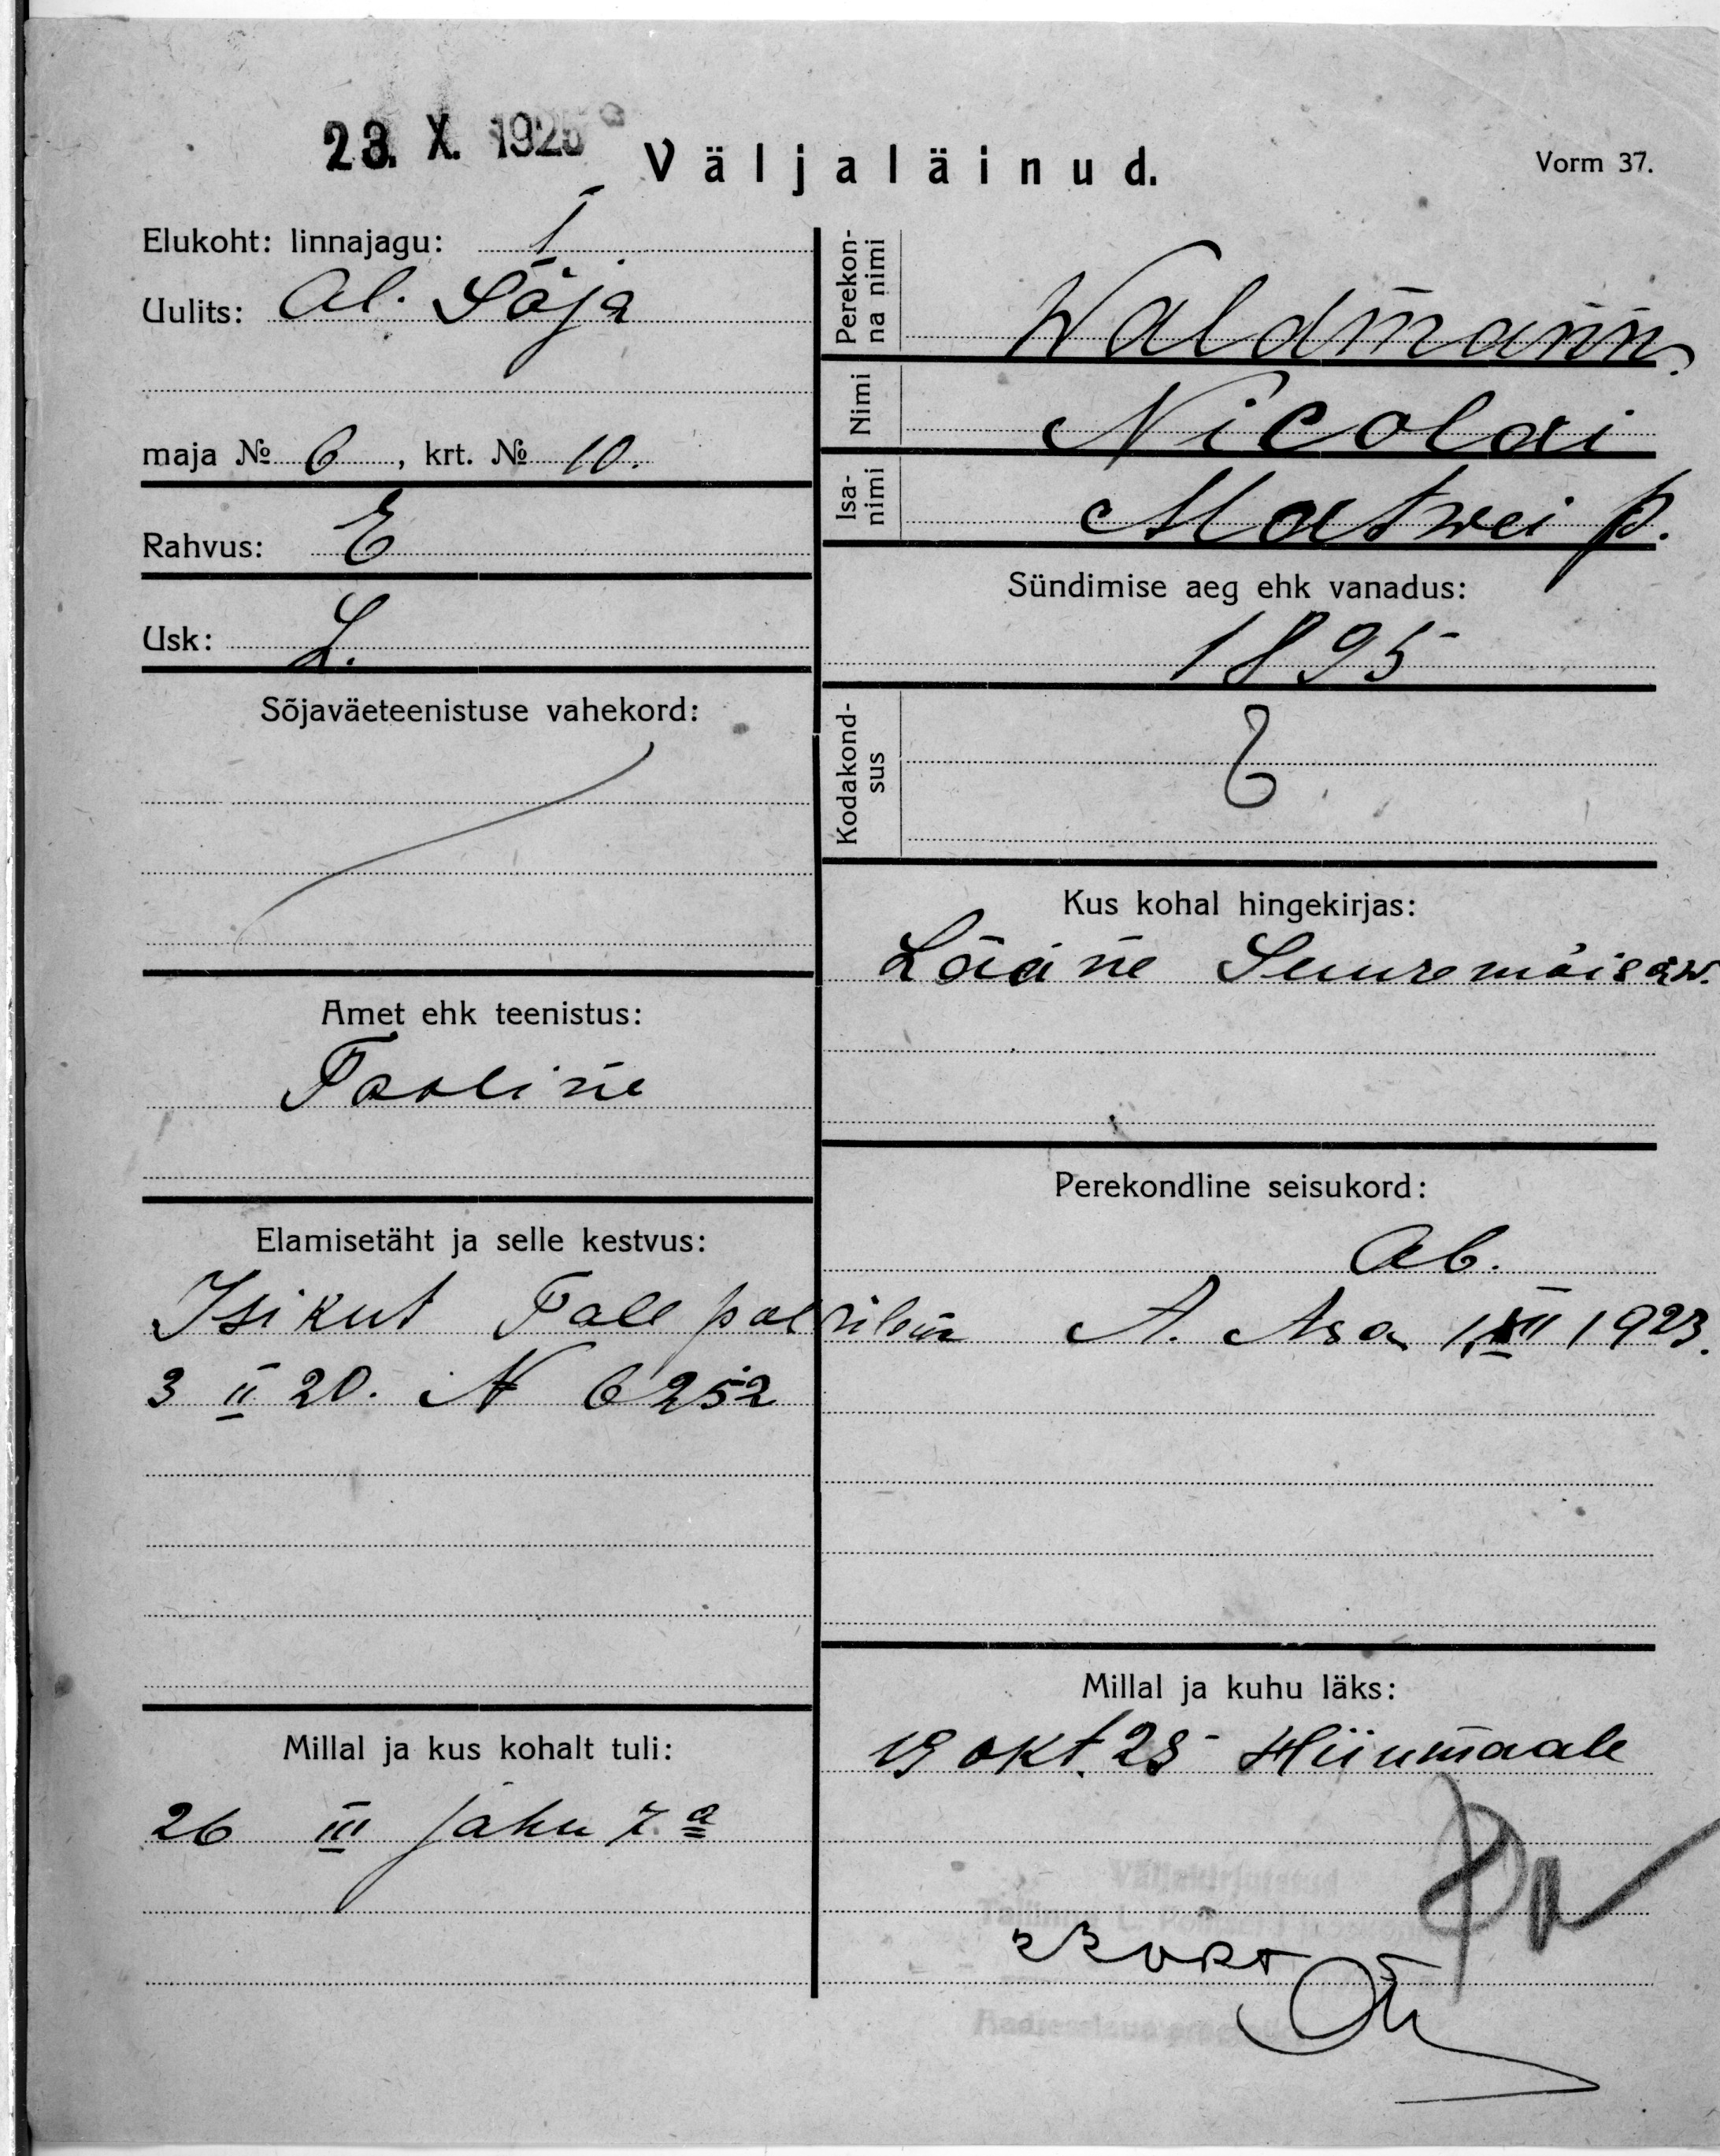 23. X. 1925
Väljaläinud.
Vorm 37.
Elukoht: linnajagu: I
Uulits: Al. Sõja
maja № 6, krt. № 10.
Rahvus: E
Usk: L.
Sõjaväeteenistuse vahekord:
Amet ehk teenistus:
Tööline
Elamisetäht ja selle kestvus:
Isikut Tall pol
3 II 20. N 6252
Millal ja kus kohalt tuli:
26 III Jahu 7.a
Perekon-
na nimi
Waldmann.
Nimi
Nicolai
Isa-
nimi
Matwei p.
Sündimise aeg ehk vanadus:
1895
Kodakond-
sus
E
Kus kohal hingekirjas:
Lääne Suuremõisa w.
Perekondline seisukord:
Ab.
1923.
Millal ja kuhu läks:
19 okt. 25 Hiiumaale
Väljakirjutatud
Tallinna